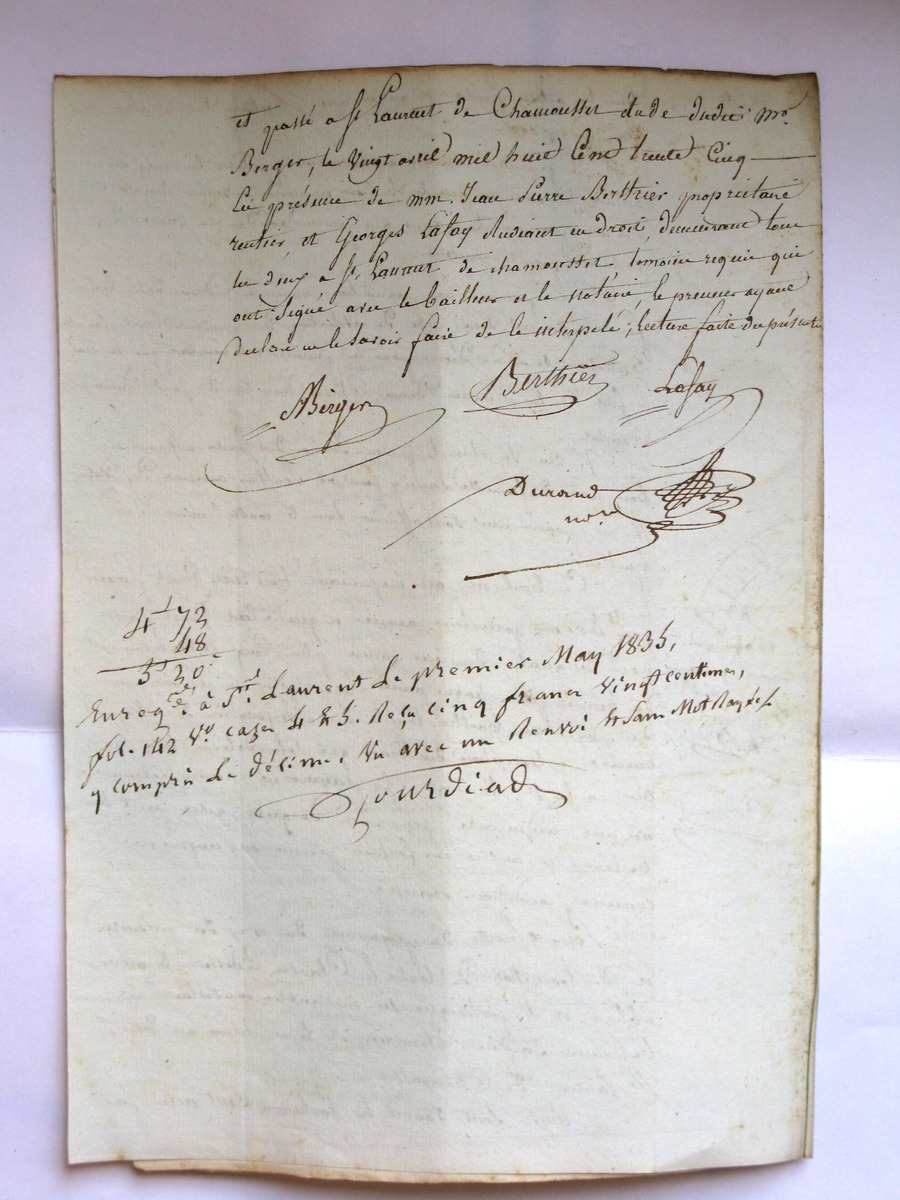 et passé a St Laurent de Chamousset étude dudit Me.
Berger, le Vingt avril mil huit Cent trente Cinq
En présence de mm. Jean Pierre Berthier propriétaire
rentier, et Georges Lafay étudiant en droit, demeurant tous
les deux a St Laurent de chamousset temoins requis qui
ont signé avec le bailleur et le notaire, le preneur ayant
declaré ne le savoir faire de ce interpelé, lecture faite du présent
Berger Berthier Lafay
Durand
nore
4f 73
48
5f 20c
Enregtré. à St. Laurent le premier May 1835,
fol. 142 Vo cazes 4 & 5. Reçu cinq francs vingt centimes,
y compris le décime. Vu avec un Renvoi & sans Mot Rayé